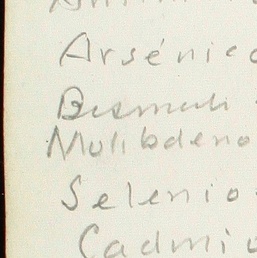 Arsénico
Bismuti
Molibdeno
Selenio
Cadmio